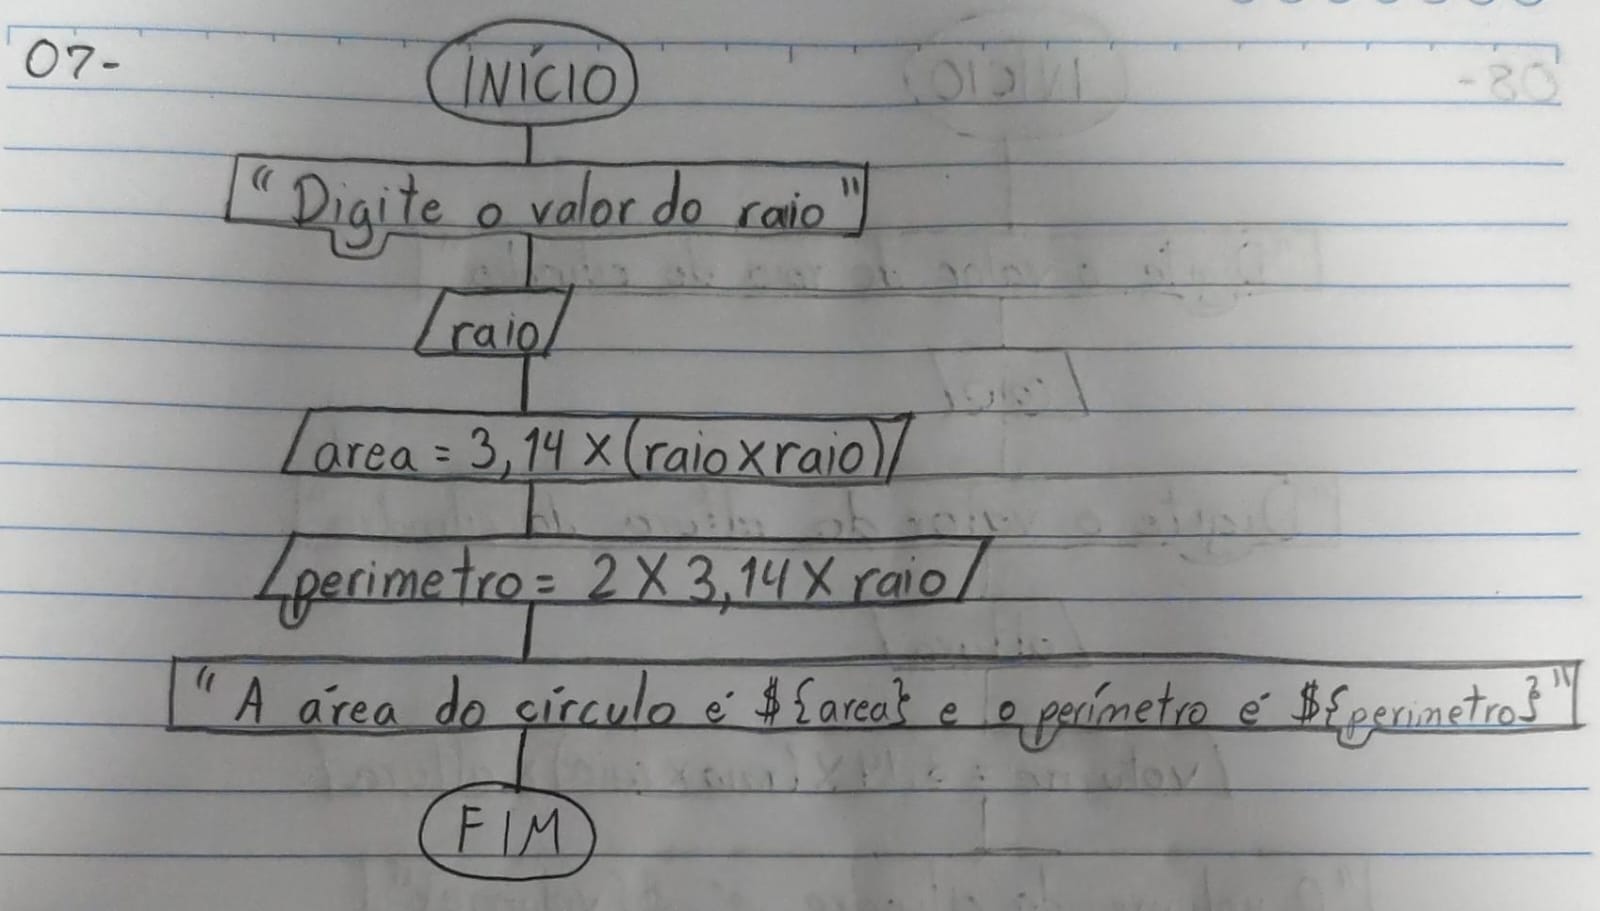 07-
INÍCIO
"Digite o valor do raio"
raio
area = 3,14 X (raio x raio)
perimetro = 2 X 3,14 X raio
"A área do círculo é ${area} e o perímetro é ${perimetro}"
FIM